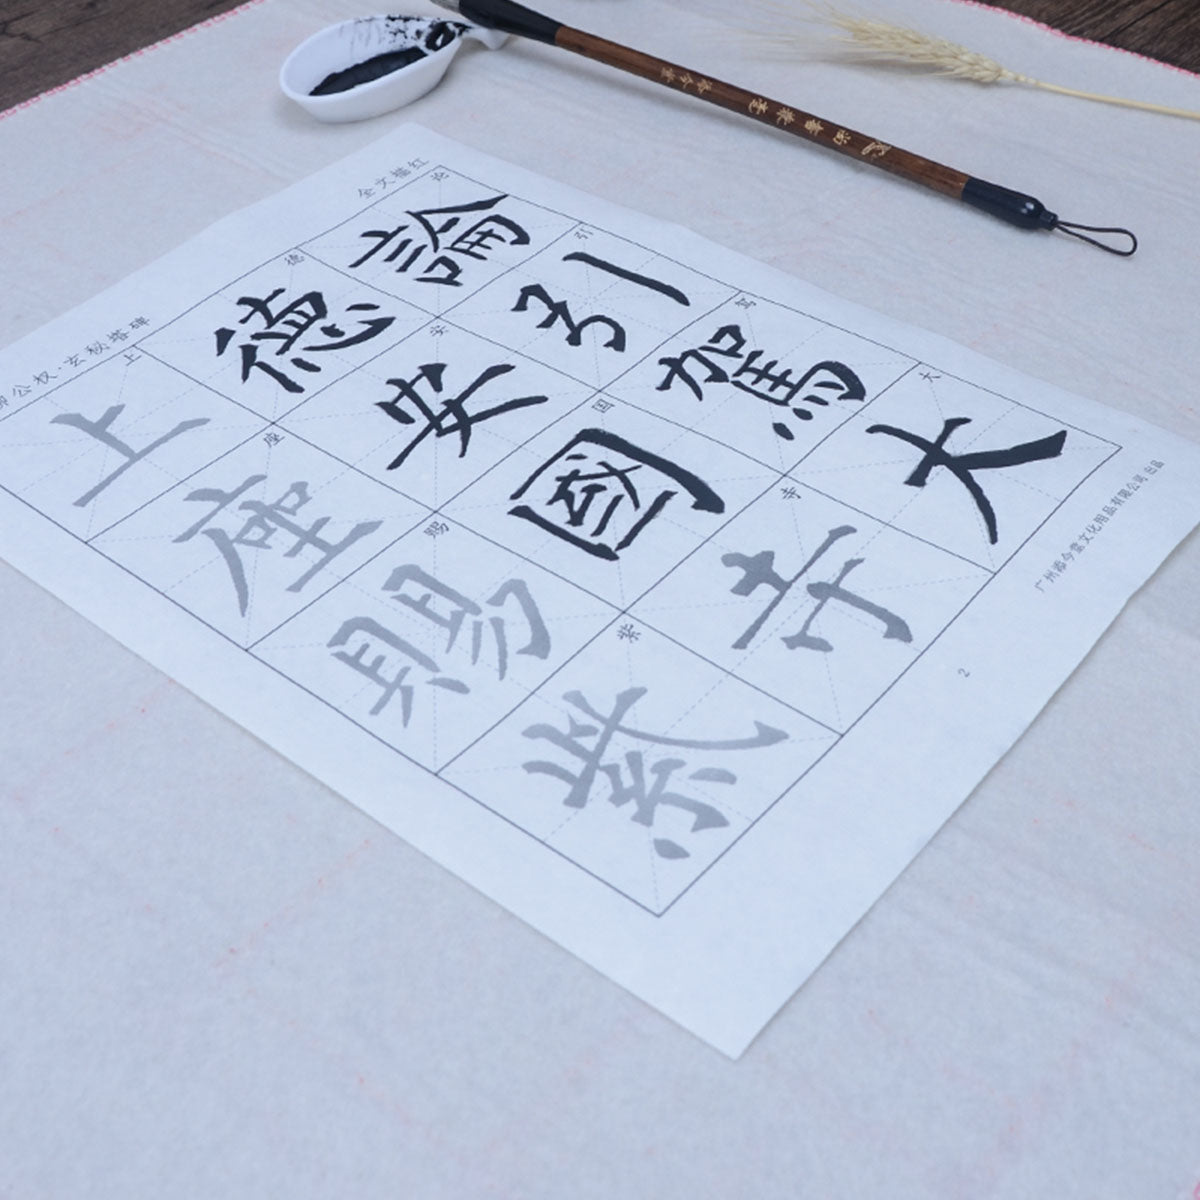 全文描红
柳公权·玄秘塔碑
论 引 驾 大
論引駕大
德 安 国 寺
德安國寺
上 座 赐 紫
上座賜紫
广州添今堂文化用品有限公司 出品
2